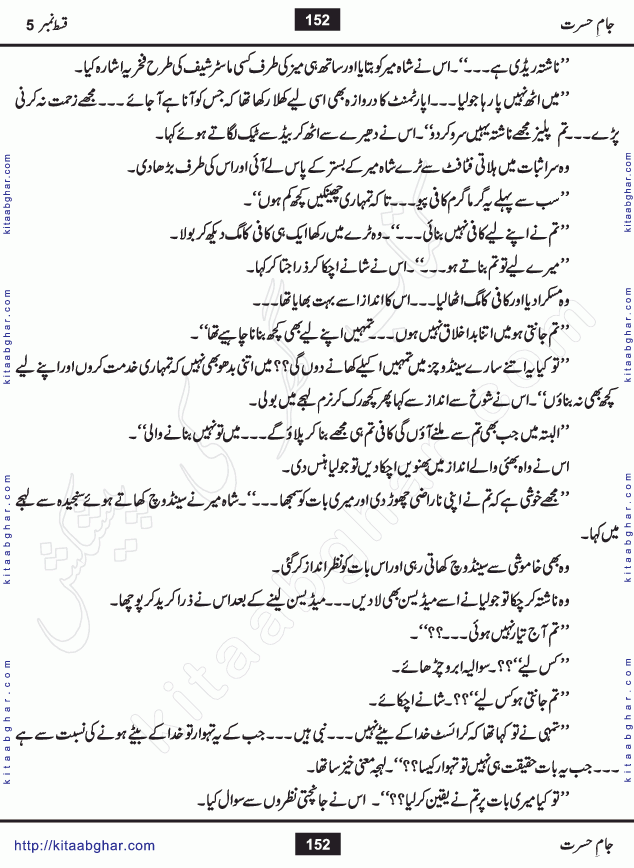 جامِ حسرت 152 قسط نمبر 5
’’ناشتہ ریڈی ہے۔۔۔‘‘۔ اس نے شاہ میر کو بتایا اور ساتھ ہی میز کی طرف کسی ماسٹر شیف کی طرح فخریہ اشارہ کیا۔
’’میں اٹھ نہیں پا رہا جولیا۔۔۔ اپارٹمنٹ کا دروازہ بھی اسی لیے کھلا رکھا تھا کہ جس کو آنا ہے آ جائے ۔۔۔ مجھے زحمت نہ کرنی
پڑے۔۔۔ تم پلیز مجھے ناشتہ یہیں سرو کر دو‘‘۔ اس نے دھیرے سے اٹھ کر بیڈ سے ٹیک لگاتے ہوئے کہا۔
وہ سر اثبات میں ہلاتی فٹافٹ سے ٹرے شاہ میر کے بستر کے پاس لے آئی اور اس کی طرف بڑھا دی۔
’’سب سے پہلے یہ گرما گرم کافی پیو۔۔۔ تاکہ تمہاری چھینکیں کچھ کم ہوں‘‘۔
’’تم نے اپنے لیے کافی نہیں بنائی۔۔۔‘‘۔ وہ ٹرے میں رکھا ایک ہی کافی کا مگ دیکھ کر بولا۔
’’میرے لیے تو تم بناتے ہو۔۔۔‘‘۔ اس نے شانے اچکا کر ذرا جتا کر کہا۔
وہ مسکرا دیا اور کافی کا مگ اٹھا لیا۔۔۔ اس کا انداز اسے بہت بھایا تھا۔۔۔
’’تم جانتی ہو میں اتنا بد اخلاق نہیں ہوں۔۔۔ تمہیں اپنے لیے بھی کچھ بنانا چاہیے تھا‘‘۔
’’تو کیا یہ اتنے سارے سینڈوچز میں تمہیں اکیلے کھانے دوں گی؟؟ میں اتنی بدھو بھی نہیں کہ تمہاری خدمت کروں اور اپنے لیے
کچھ بھی نہ بناؤں‘‘۔ اس نے شوخ سے انداز سے کہا پھر کچھ رک کر نرم لہجے میں بولی۔
’’البتہ میں جب بھی تم سے ملنے آؤں گی کافی تم ہی مجھے بنا کر پلاؤ گے۔۔۔ میں تو نہیں بنانے والی‘‘۔
اس نے واہ بھئی والے انداز میں بھنویں اچکا دیں تو جولیا ہنس دی۔
’’مجھے خوشی ہے کہ تم نے اپنی ناراضی چھوڑ دی اور میری بات کو سمجھا۔۔۔‘‘۔ شاہ میر نے سینڈوچ کھاتے ہوئے سنجیدہ سے لہجے
میں کہا۔
وہ بھی خاموشی سے سینڈوچ کھاتی رہی اور اس بات کو نظر انداز کر گئی۔
وہ ناشتہ کر چکا تو جولیا نے اسے میڈیسن بھی لا دیں۔۔۔ میڈیسن لینے کے بعد اس نے ذرا کرید کر پوچھا۔
’’تم آج تیار نہیں ہوئی۔۔۔؟؟‘‘۔
’’کس لیے‘‘؟؟۔ سوالیہ ابرو چڑھائے۔
’’تم جانتی ہو کس لیے‘‘؟؟۔ شانے اچکائے۔
’’تمہی نے تو کہا تھا کہ کرائسٹ خدا کے بیٹے نہیں۔۔۔ نبی ہیں۔۔۔ جب کے یہ تہوار تو خدا کے بیٹے ہونے کی نسبت سے ہے
۔۔۔ جب یہ بات حقیقت ہی نہیں تو تہوار کیسا؟؟‘‘۔ لہجہ معنی خیز سا تھا۔
’’تو کیا میری بات پر تم نے یقین کر لیا؟؟‘‘۔ اس نے جانچتی نظروں سے سوال کیا۔
جامِ حسرت 152 http://kitaabghar.com
kitaabghar.com
kitaabghar.com
kitaabghar.com
kitaabghar.com
kitaabghar.com
kitaabghar.com
kitaabghar.com
kitaabghar.com
کتاب گھر کی پیشکش
kitaabghar.com